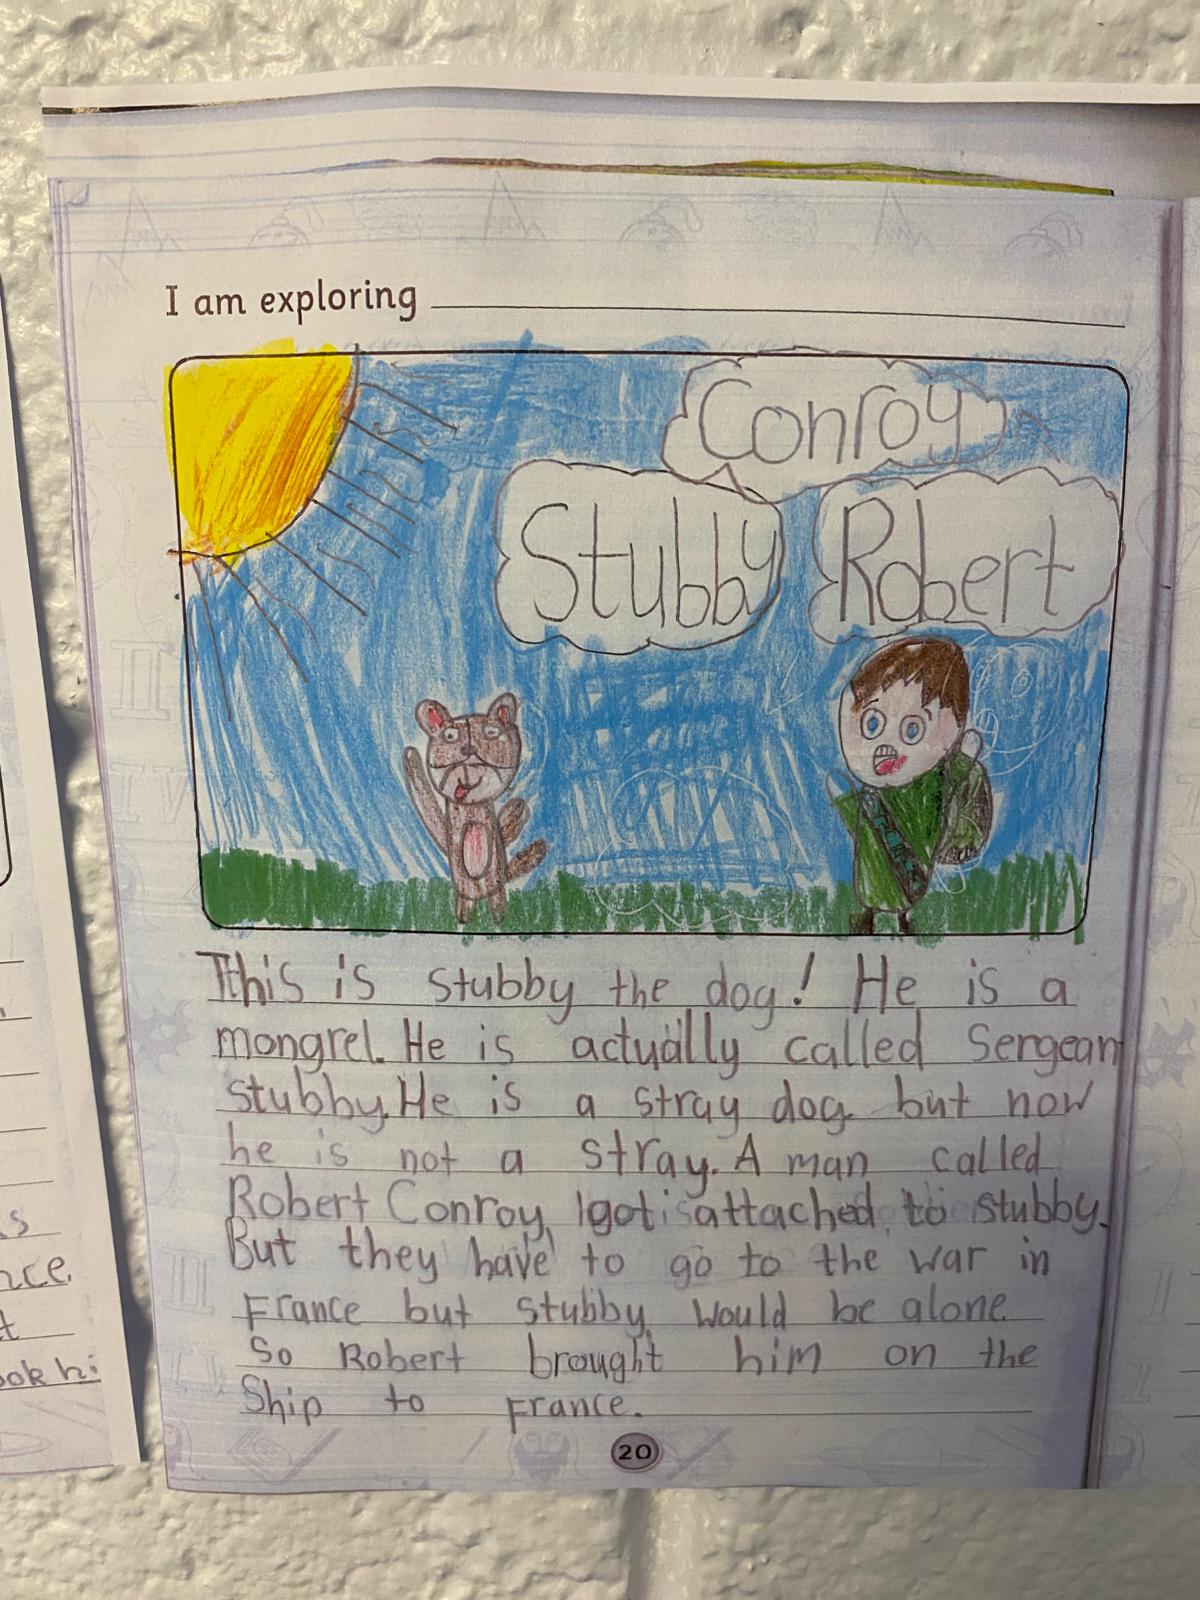 I am exploring
Conroy
Stubby
Robert
This is stubby the dog! He is a
mongrel. He is actually called Sergean
stubby. He is a stray dog but now
he is not a stray. A man called
Robert Conroy, got attached to stubby.
But they have to go to the war in
France but stubby would be alone
So Robert brought him on the
Ship to France.
20
s
nce
t
ook hi